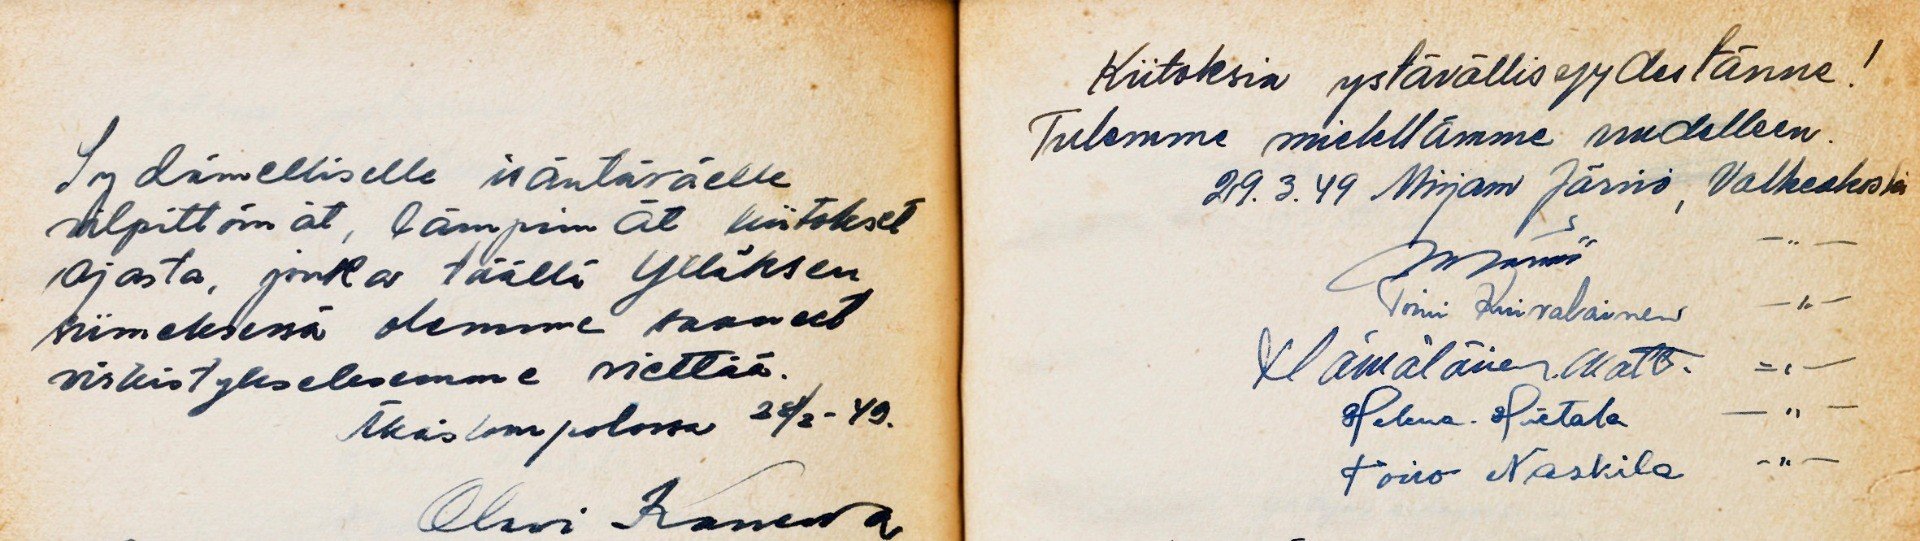 Sydämelliselle isäntäväelle
vilpittömät, lämpimät kiitokset
ajasta, jonka täällä Ylläksen
siimeksessä olemme saaneet
virkistykseksemme viettää.
Äkäslompolossa 28/3-49.
Olavi
Kiitoksia ystävällisyydestänne!
Tulemme mielellämme uudelleen.
29.3.49 Mirjam Järviö, Valkeakoski
— " —
Toini Kuivalainen — " —
Hämäläinen Matti — " —
Helena Hietala — " —
Toivo Naskila — " —